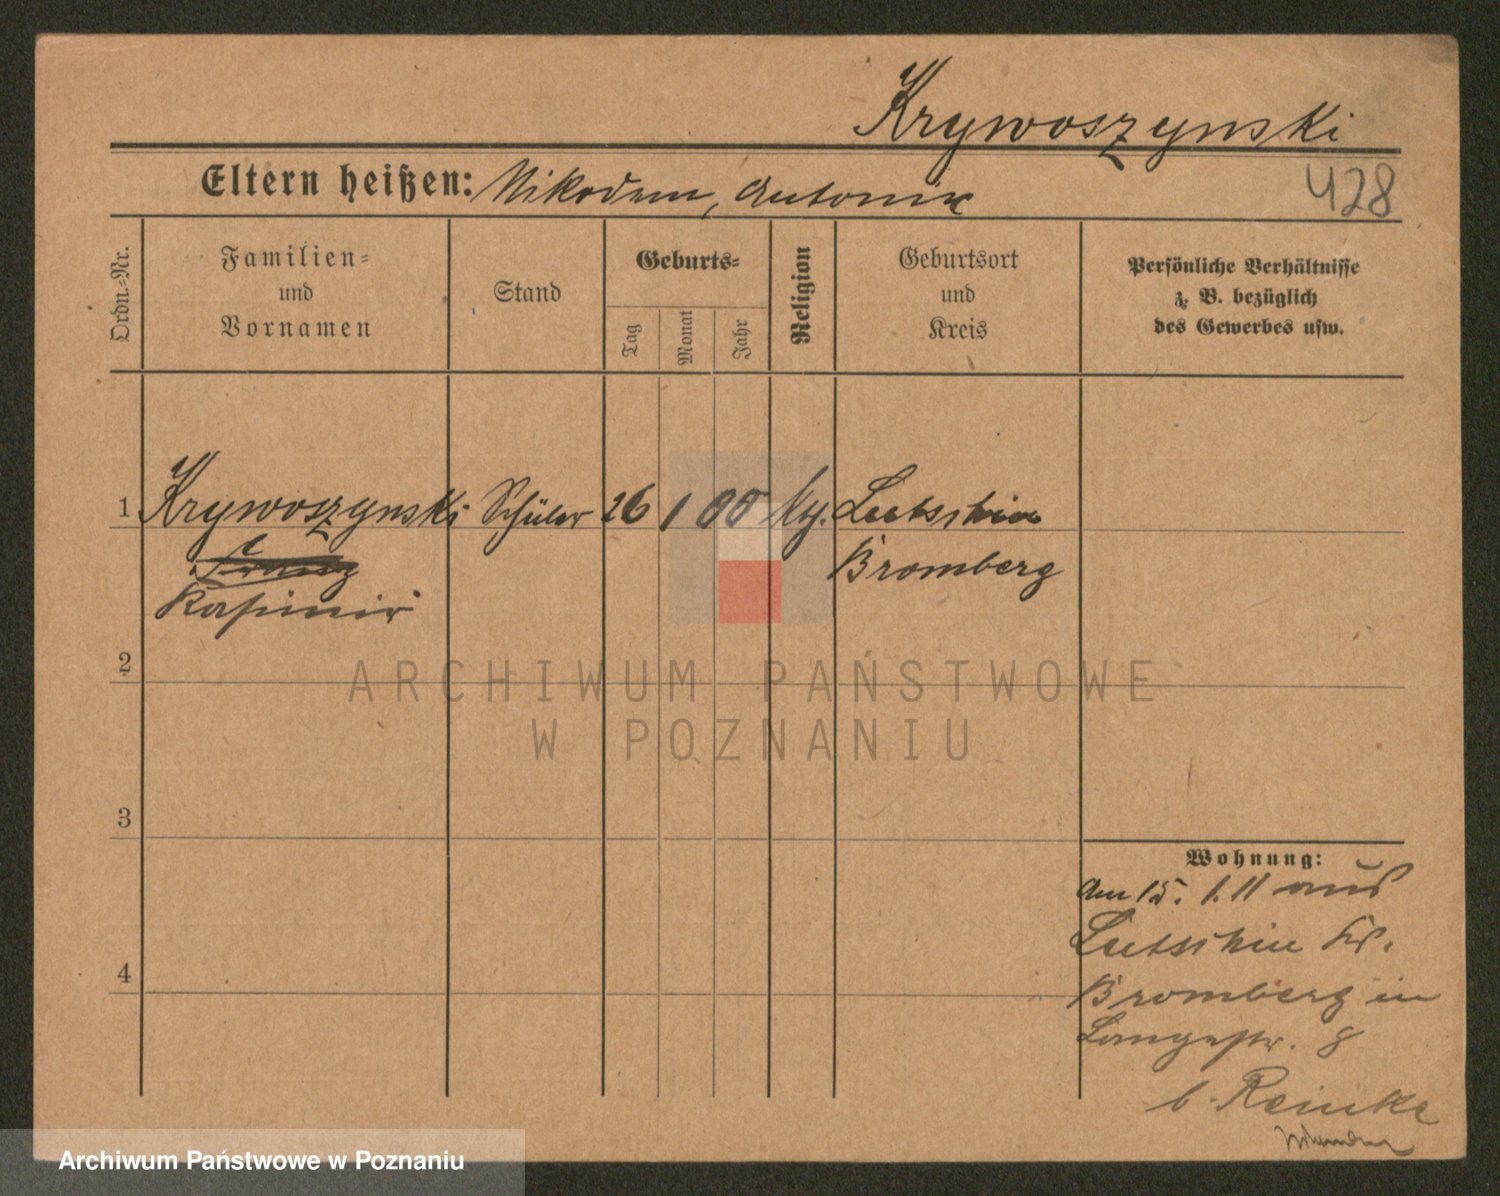 Krywoszynski
Eltern heißen: Nikodem, Antonie
428
Ordn.=Nr.
Familien=
und
Vornamen
Stand
Geburts=
Tag
Monat
Jahr
Religion
Geburtsort
und
Kreis
Persönliche Verhältnisse
z. B. bezüglich
des Gewerbes usw.
1 Krywoszynski Schüler 26 1 00 Lutsshin
Franz Bromberg
Kasimir
2
ARCHIWUM PAŃSTWOWE
W POZNANIU
3
Wohnung:
am 15. 1. 11 aus
Lutsshin Kr.
4
Bromberg in
Langestr. 8
b. Reinke
Archiwum Państwowe w Poznaniu